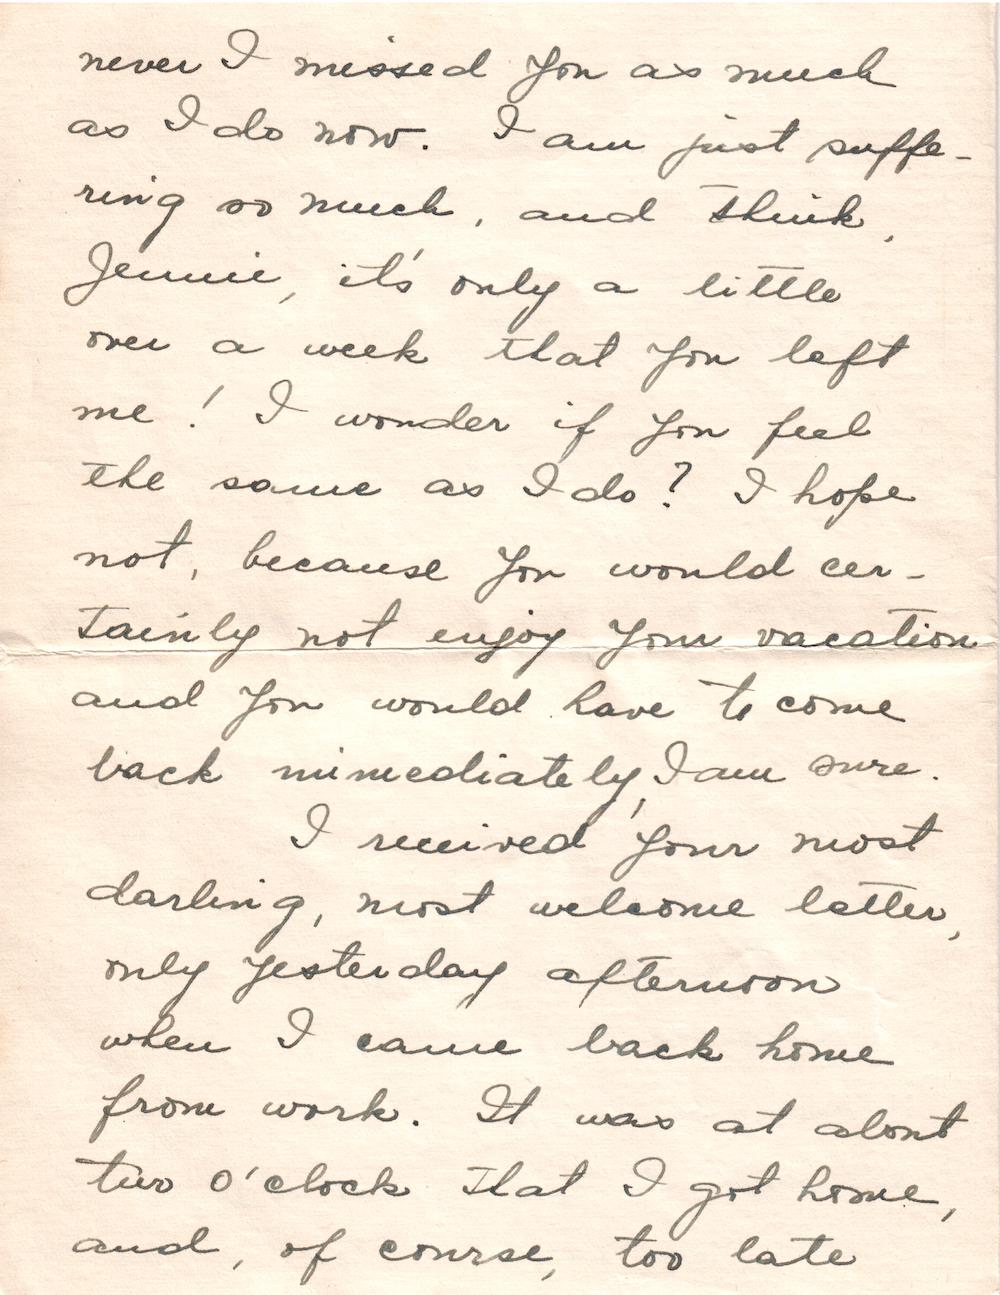 never I missed you as much
as I do now. I am just suffe-
ring so much, and think,
Jennie, it's only a little
over a week that you left
me! I wonder if you feel
the same as I do? I hope
not, because you would cer-
tainly not enjoy your vacation
and you would have to come
back immediately, I am sure.
I received your most
darling, most welcome letter,
only yesterday afternoon
when I came back home
from work. It was at about
two o'clock that I got home,
and, of course, too late